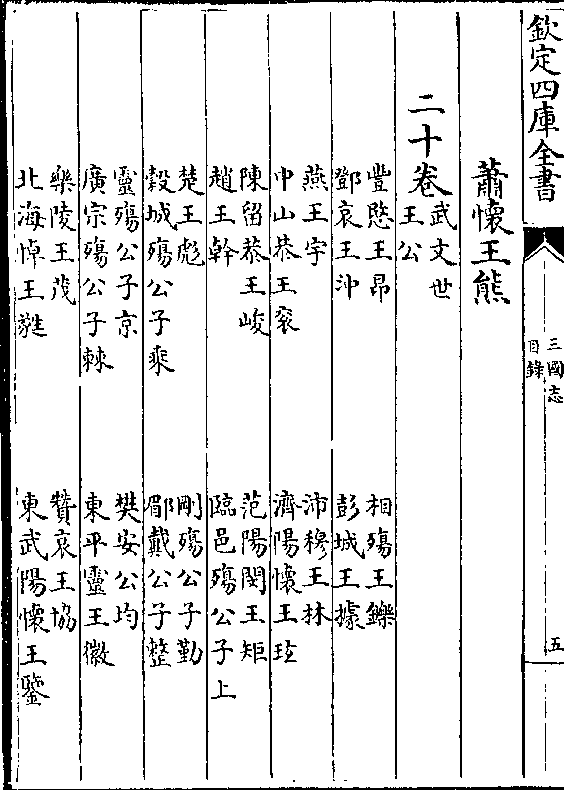 欽定四庫全書
三國志
目錄
五
蕭懷王熊
二十卷
武文世
王公
豐愍王昂
相殤王鑠
鄧哀王沖
彭城王據
燕王宇
沛穆王林
中山恭王衮
濟陽懷王玹
陳留恭王峻
范陽閔王矩
趙王幹
臨邑殤公子上
楚王彪
剛殤公子勤
穀城殤公子乘
郿戴公子整
靈殤公子京
樊安公均
廣宗殤公子棘
東平靈王徽
樂陵王茂
贊哀王協
北海悼王蕤
東武陽懷王鑒